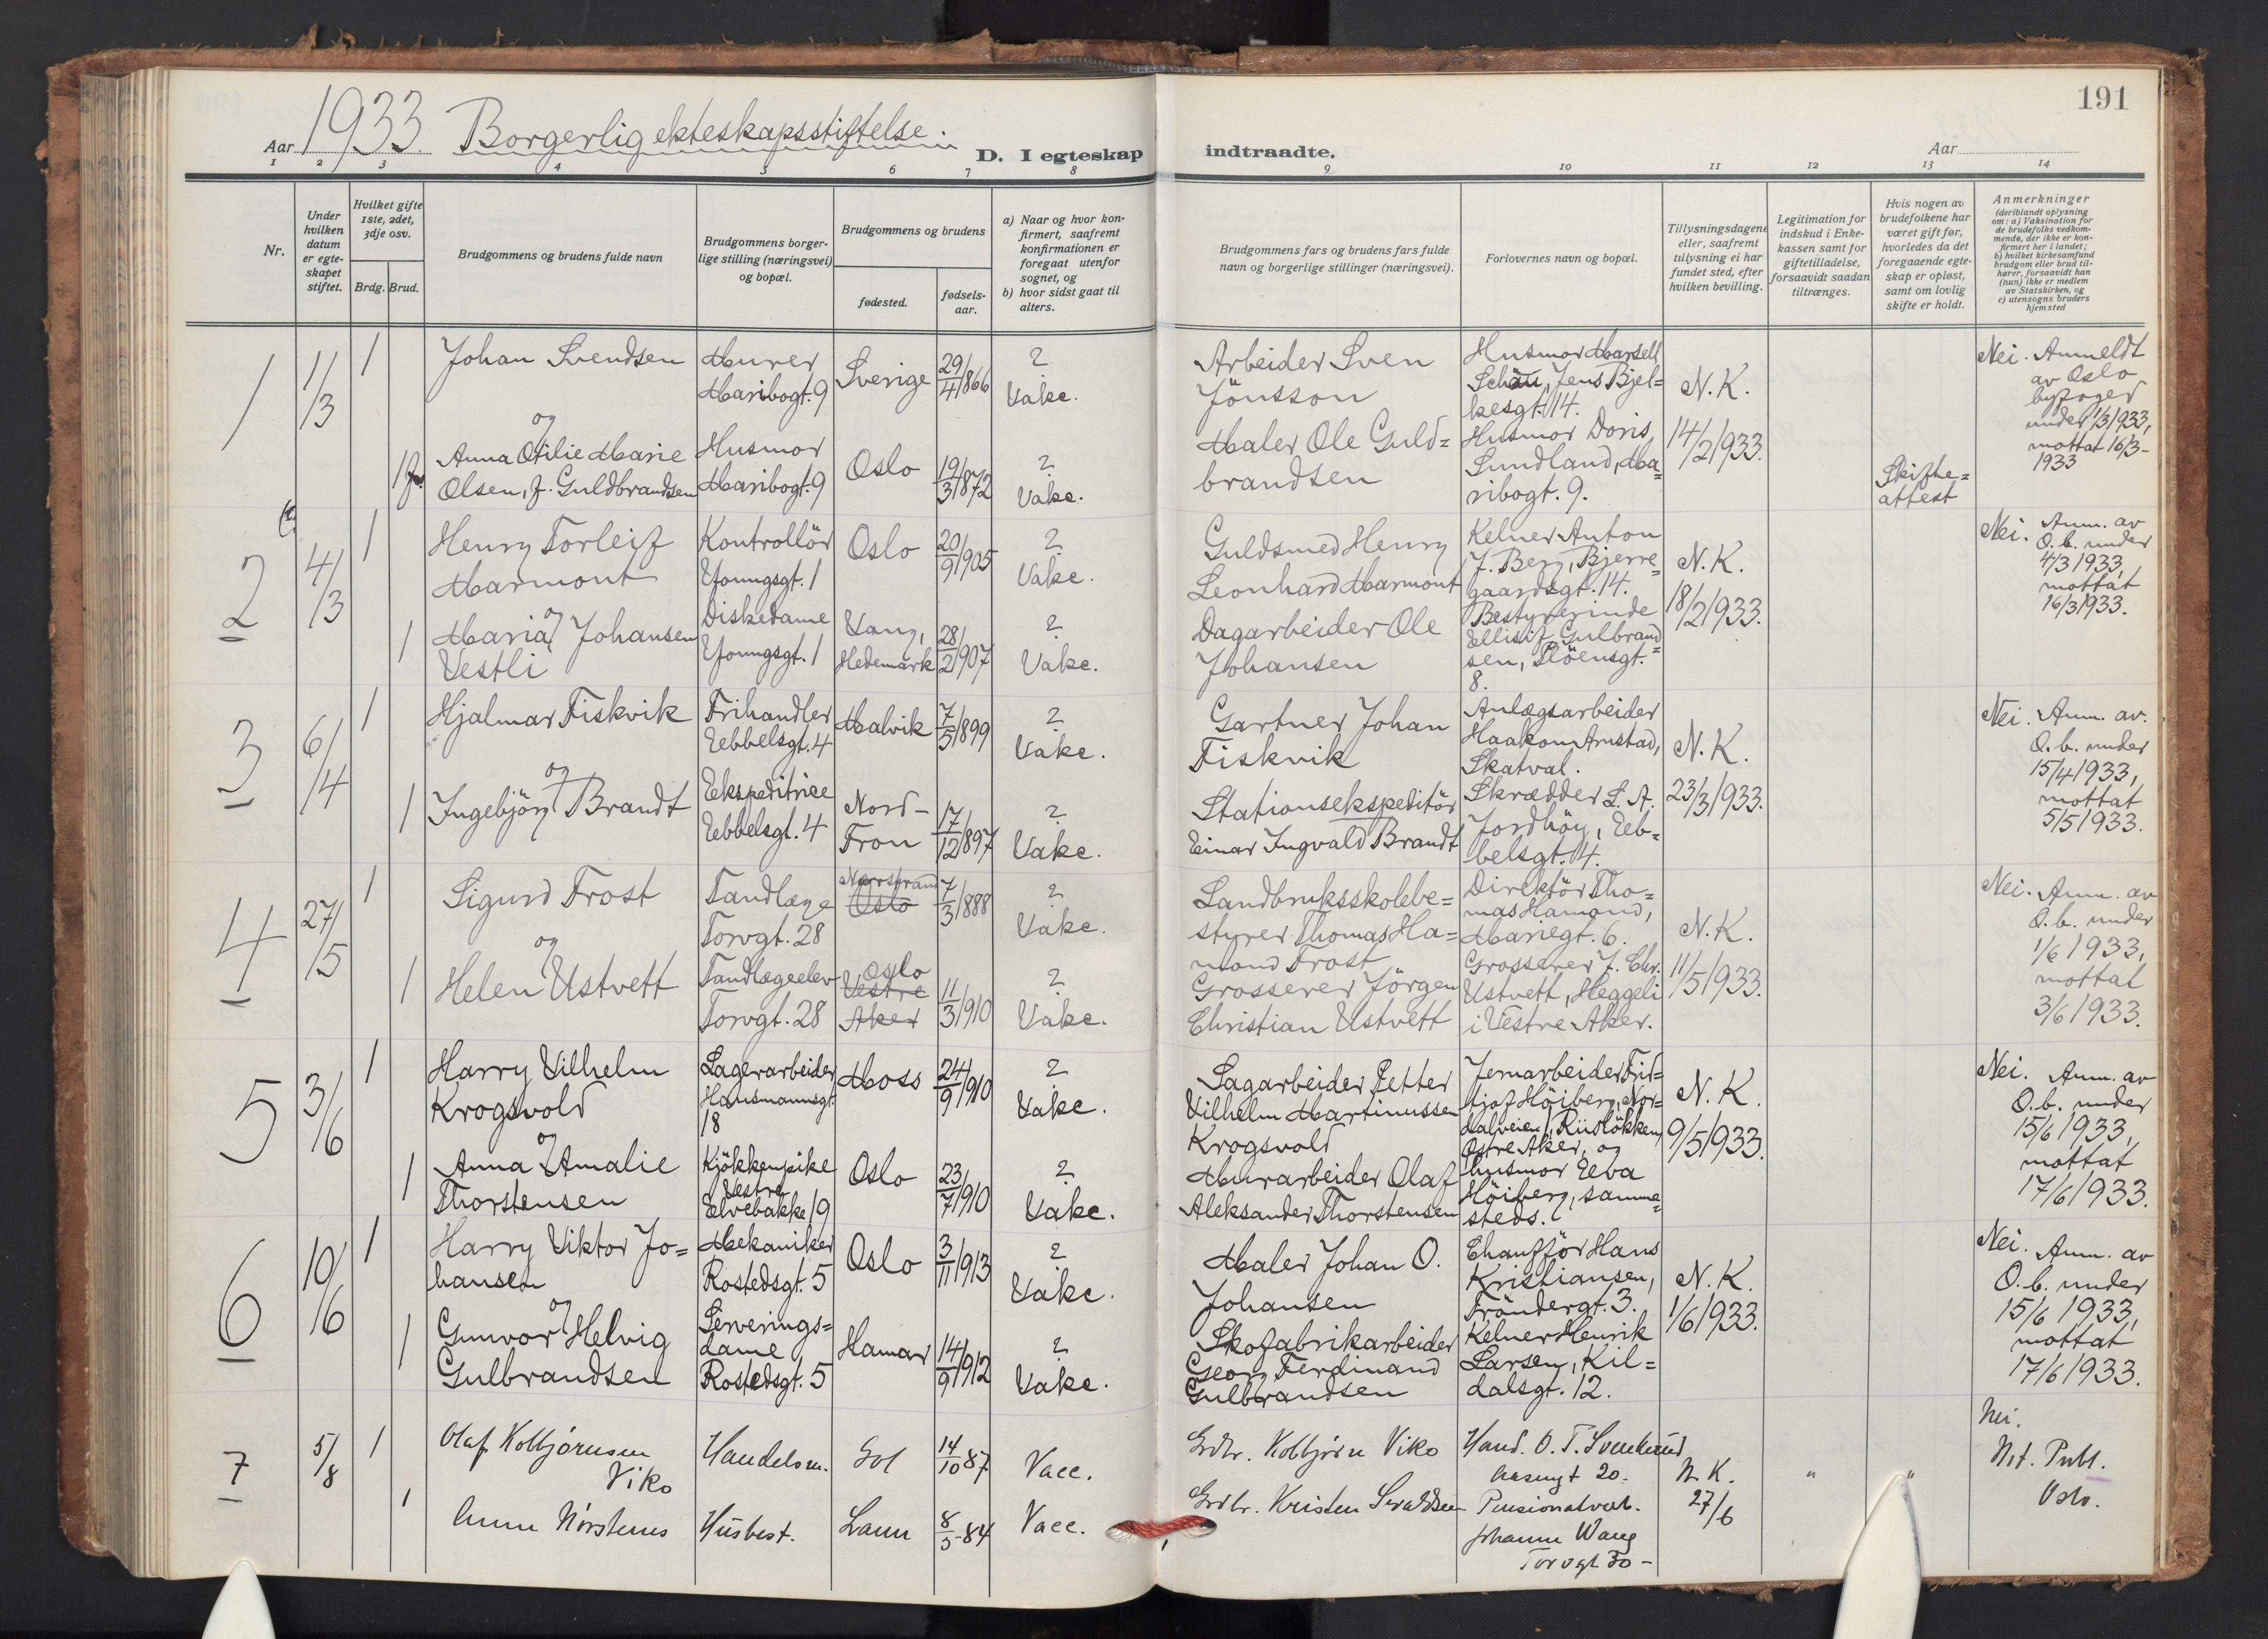 191
Aar 1933. Borgerlig ekteskapsstiftelse.
D. I egteskap indtraadte.
Aar
1 2 3 4 5 6 7 8 9 10 11 12 13 14
Nr.
Under hvilken datum er egte-skapet stiftet.
Hvilket gifte 1ste, 2det, 3dje osv.
Brdg. Brud.
Brudgommens og brudens fulde navn
Brudgommens borger-
lige stilling (næringsvei)
og bopæl.
Brudgommens og brudens
fødested.
fødsels-
aar.
a) Naar og hvor kon-
firmert, saafremt
konfirmationen er
foregaat utenfor
sognet, og
b) hvor sidst gaat til
alters.
Brudgommens fars og brudens fars fulde
navn og borgerlige stillinger (næringsvei).
Forlovernes navn og bopæl.
Tillysningsdagene
eller, saafremt
tillysning ei har
fundet sted, efter
hvilken bevilling.
Legitimation for
indskud i Enke-
kassen samt for
giftetilladelse,
forsaavidt saadan
tiltrænges.
Hvis nogen av
brudefolkene har
været gift før,
hvorledes da det
foregaaende egte-
skap er opløst,
samt om lovlig
skifte er holdt.
Anmerkninger
(deriblandt oplysning
om: a) Vaksination for
de brudefolks vedkom-
mende, der ikke er kon-
firmert her i landet;
b) hvilket kirkesamfund
brudgom eller brud til-
hører, forsaavidt han
(hun) ikke er medlem
av Statskirken, og
c) utensogns bruders
hjemsted
1
1/3
1
Johan Svendsen
Murer
Maribogt. 9
Sverige
29/4 1866
?
Vakc.
Arbeider Sven
Jönsson
Husmor Marsell
Schau, Jens Bjel=
kesgt. 14.
N. K.
14/2 1933.
Nei. Anmeldt
av Oslo
byfoged
under 1/3 1933,
mottat 16/3-
1933
og
1 f.
Anna Otilie Marie
Olsen, f. Guldbrandsen
Husmor
Maribogt. 9
Oslo
19/3 1872
?
Vakc.
Maler Ole Guld=
brandsen
Husmor Doris
Sundland, Ma=
ribogt. 9.
Skifte=
attest
2
4/3
1
Henry Torleif
Marmont
Kontrollör
Youngsgt. 1
Oslo
20/9 1905
?
Vakc.
Guldsmed Henry
Leonhard Marmont
Kelner Anton
J. Berg, Bjerre=
gaardsgt. 14.
N. K.
18/2 1933.
Nei. Anm. av
O. b. under
4/3 1933,
mottat
16/3 1933.
og
1
Maria Johansen
Vestli
Diskedame
Youngsgt. 1
Vang,
Hedemark
28/2 1907
?
Vakc.
Dagarbeider Ole
Johansen
Bestyrerinde
Ellisif Gulbrand=
sen, Plöensgt.
8.
3
6/4
1
Hjalmar Fiskvik
Frihandler
Ebbelsgt. 4
Malvik
7/5 1899
?
Vakc.
Gartner Johan
Fiskvik
Anlægsarbeider
Haakon Arnstad,
Skatval.
N. K.
23/3 1933.
Nei. Anm. av.
O. b. under
15/4 1933,
mottat
5/5 1933.
og
1
Ingebjörg Brandt
Ekspeditrice
Ebbelsgt. 4
Nord-
Fron
17/12 1897
?
Vakc.
Stationsekspeditör
Einar Ingvald Brandt
Skrædder S. A.
Jordhöy, Eb=
belsgt. 4.
4
27/5
1
Sigurd Frost
Tandlæge
Torvgt. 28
Norstrand
Oslo
7/3 1888
?
Vakc.
Landbruksskolebe=
styrer Thomas Ha=
mond Frost
Direktör Tho=
mas Hamond,
Mariegt. 6.
N. K.
11/5 1933.
Nei. Anm. av
O. b. under
1/6 1933,
mottat
3/6 1933.
og
1
Helen Ustvett
Tandlægeelev
Torvgt. 28
Oslo
Vestre
Aker
11/3 1910
?
Vakc.
Grosserer Jörgen
Christian Ustvett
Grosserer J. Chr.
Ustvett, Heggeli
i Vestre Aker.
5
3/6
1
Harry Vilhelm
Krogsvold
Lagerarbeider
Hausmannsgt.
18
Moss
24/9 1910
?
Vakc.
Sagarbeider Petter
Vilhelm Martinussen
Krogsvold
Jernarbeider Frid=
tjof Höiberg, Nor=
dalveien 1, Riislökken,
Østre Aker, og
husmor Eva
Höiberg, samme=
steds.
N. K.
9/5 1933.
Nei. Anm. av
O. b. under
15/6 1933,
mottat
17/6 1933.
og
1
Anna Amalie
Thorstensen
Kjökkenpike
Vestre
Elvebakke 19
Oslo
23/7 1910
?
Vakc.
Murarbeider Olaf
Aleksander Thorstensen
6
10/6
1
Harry Viktor Jo=
hansen
Mekaniker
Rostedsgt. 5
Oslo
3/11 1913
?
Vakc.
Maler Johan O.
Johansen
Chaufför Hans
Kristiansen,
Tröndergt. 3.
N. K.
1/6 1933.
Nei. Anm. av
O. b. under
15/6 1933,
mottat
17/6 1933.
og
1
Gunvor Helvig
Gulbrandsen
Serverings=
dame
Rostedsgt. 5
Hamar
14/9 1912
?
Vakc.
Skofabrikarbeider
Georg Ferdinand
Gulbrandsen
Kelner Henrik
Larsen, Kil=
dalsgt. 12.
7
5/8
1
Olaf Kolbjørnsen
Viko
Handelsm.
Gol
14/10 87
Vacc.
Grdbr. Kolbjørn Viko
Hand. O. T.
20.
N. K.
27/6
"
"
Nei.
Not. Publ.
Oslo.
1
Husbest.
8/5-84
Vacc.
Grdbr. Kristen
Johanne Wang
Torvgt 30-